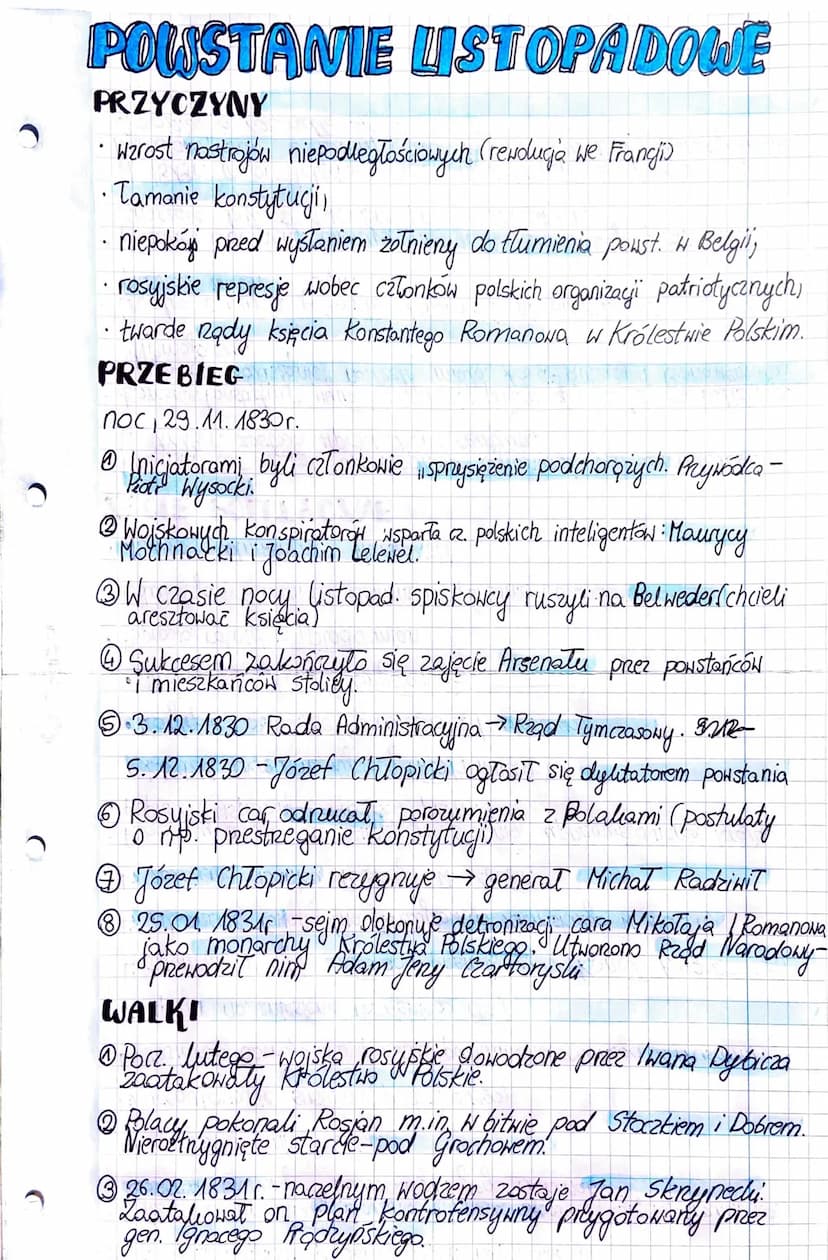 POWSTANIE LISTOPADOWE
PRZYCZYNY
· wzrost nastrojów niepodległościowych (rewolucja we Francji)
· łamanie konstytucji,
· niepokój przed wysłaniem żołnierzy do tłumienia powst. w Belgii,
· rosyjskie represje wobec członków polskich organizacji patriotycznych,
· twarde rządy księcia Konstantego Romanowa w Królestwie Polskim.
PRZEBIEG
noc, 29.11.1830r.
① Inicjatorami byli członkowie „sprzysiężenie podchorążych. Przywódca -
Piotr Wysocki.
② Wojskowych konspiratorów wsparła cz. polskich inteligentów: Maurycy
Mochnacki i Joachim Lelewel.
③ W czasie nocy listopad. spiskowcy ruszyli na Belweder (chcieli
aresztować księcia)
④ Sukcesem zakończyło się zajęcie Arsenału przez powstańców
i mieszkańców stolicy.
⑤ 3.12.1830 Rada Administracyjna → Rząd Tymczasowy.
5.12.1830 - Józef Chłopicki ogłosił się dyktatorem powstania
⑥ Rosyjski car odrzucał porozumienia z Polakami (postulaty
o np. przestrzeganie konstytucji)
⑦ Józef Chłopicki rezygnuje → generał Michał Radziwił
⑧ 25.01.1831r - sejm dokonuje detronizacji cara Mikołaja I Romanowa
jako monarchy Królestwa Polskiego. Utworzono Rząd Narodowy-
przewodził nim Adam Jerzy Czartoryski
WALKI
① Pocz. lutego - wojska rosyjskie dowodzone przez Iwana Dybicza
zaatakowały Królestwo Polskie.
② Polacy pokonali Rosjan m.in. w bitwie pod Stoczkiem i Dobrem.
Nierozstrzygnięte starcie - pod Grochowem.
③ 26.02.1831r. - naczelnym wodzem zostaje Jan Skrzynecki.
Zaatakował on plan kontrofensywny przygotowany przez
gen. Ignacego Prądzyńskiego.